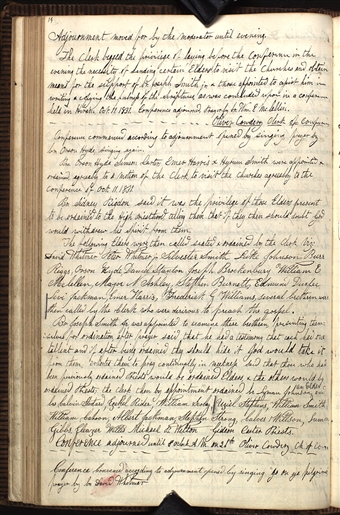 14
Adjournment moved for by the moderator until evening.
The Clerk begged the privilege of laying before the Conference in the
evening the necessity of sending certain Elders to visit the Churches and obtain
means for the support of br Joseph Smith jr & those appointed to assist him in
writing & copying the fulness of the scriptures as was concluded upon in a conference
held in Oct. 11. 1831. Conference adjourned, prayer by br. Wm E McLellin.
Oliver Cowdery Clerk of Conference
Conference commenced according to adjournment opened by singing prayer by
br. Orson Hyde, singing again.
Brs. Orson Hyde, Simeon Carter, Emer Harris & Hyrum Smith were appointed &
ordained agreeably to a motion of the Clerk to visit the churches agreeably to the
conference of Oct. 11 1831.
Br. Sidney Rigdon said it was the privilege of those Elders present
to be ordained to the High Priesthood telling them that if they then should doubt God
would withdraw his Spirit from them.
The following Clerk were then called seated & ordained by the Clerk Viz
David Whitmer, Peter Whitmer jr, Sylvester Smith, Luke Johnson, Burr
Riggs, Orson Hyde, Daniel Stanton, Joseph Brackenbury, William E
McLellin, Major N. Ashley, Stephen Burnett, Edmund Durfee
Levi Jackman, Emer Harris, Frederick G Williams, several brethren were
then called by the clerk who were desirous to preach the gospel.
Br. Joseph Smith jr. was appointed to examine these brethren presenting them-
selves for ordination, after prayer said that he had a testimony that each had one
tallent and if after being ordained they should hide it God would take it
from them. exhorted them to pray continually in meekness. Said that those who had
been previously ordained Priests would be ordained Elders & the others would be
ordained Priests. the clerk then by appointment ordained br. Lyman Johnston, an Elder
William Smith,
Gibbs Eleazer Willes, Michael B Welton Gideon Carter Priests.
Conference adjourned until on 26th Oliver Cowdery Clk of Con
Conference convened according to adjournment opened by singing "go on ye pilgrims
prayer by br David Whitmer